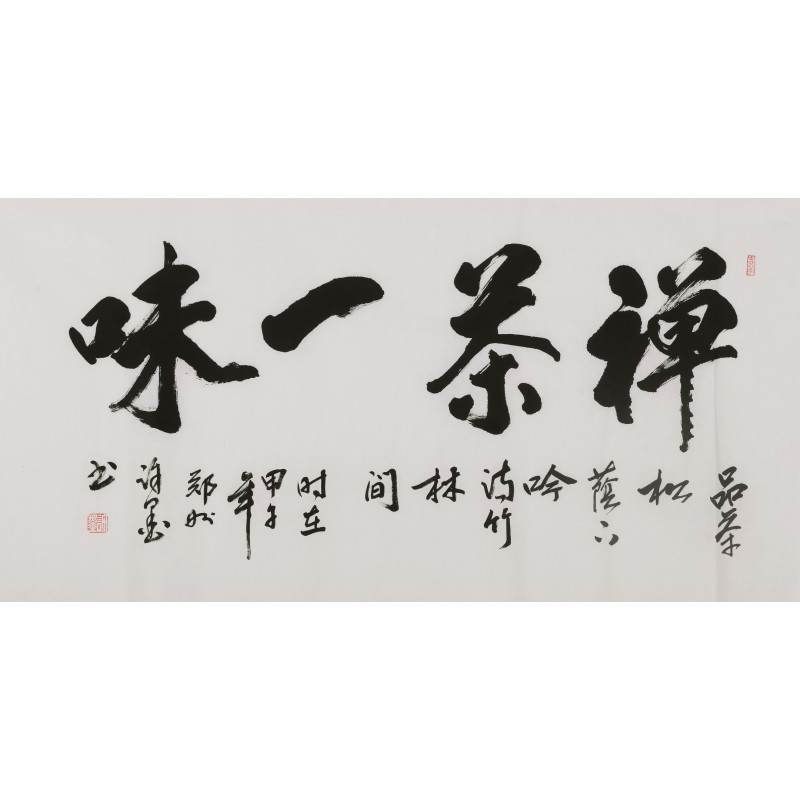 禅茶一味
品茶
松
荫下
吟
诗竹
林
间
时在
甲午
年
郑州
许墨
书